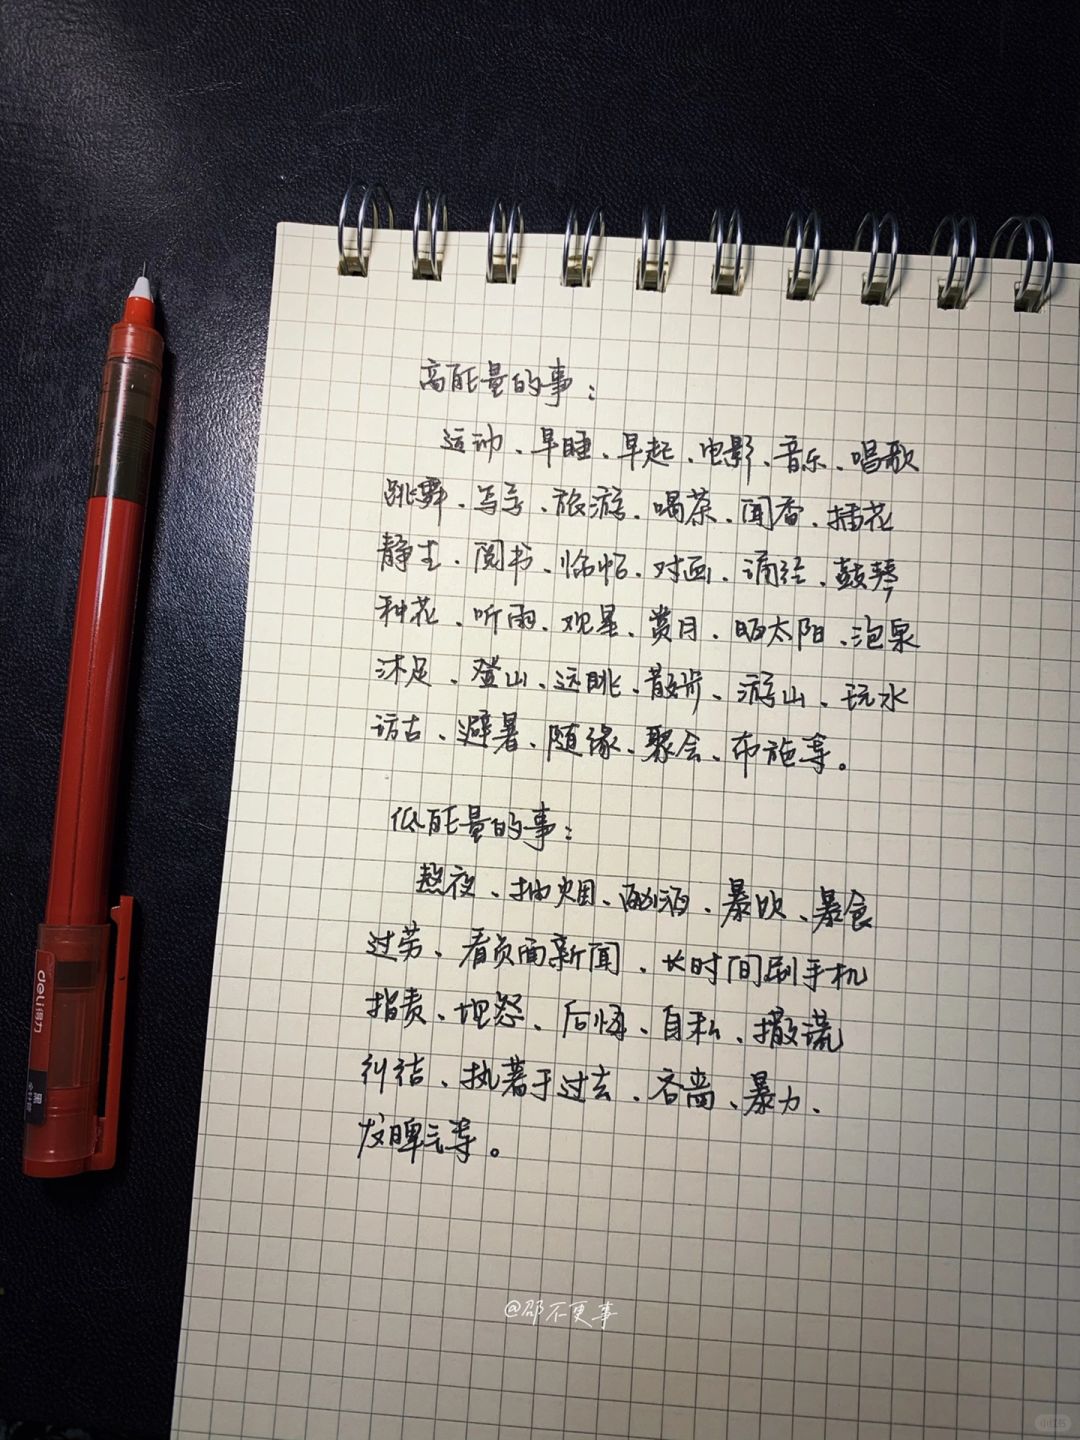 高能量的事：
运动、早睡、早起、电影、音乐、唱歌
跳舞、写字、旅游、喝茶、闻香、插花
静坐、阅书、临帖、对画、诵经、鼓琴
种花、听雨、观星、赏月、晒太阳、泡泉
沐足、登山、远眺、散步、游山、玩水
访古、避暑、随缘、聚会、布施等。
低能量的事：
熬夜、抽烟、酗酒、暴饮、暴食
过劳、看负面新闻、长时间刷手机
指责、埋怨、后悔、自私、撒谎
纠结、执著于过去、吝啬、暴力、
发脾气等。
deli得力
黑
@邵不更事
小红书